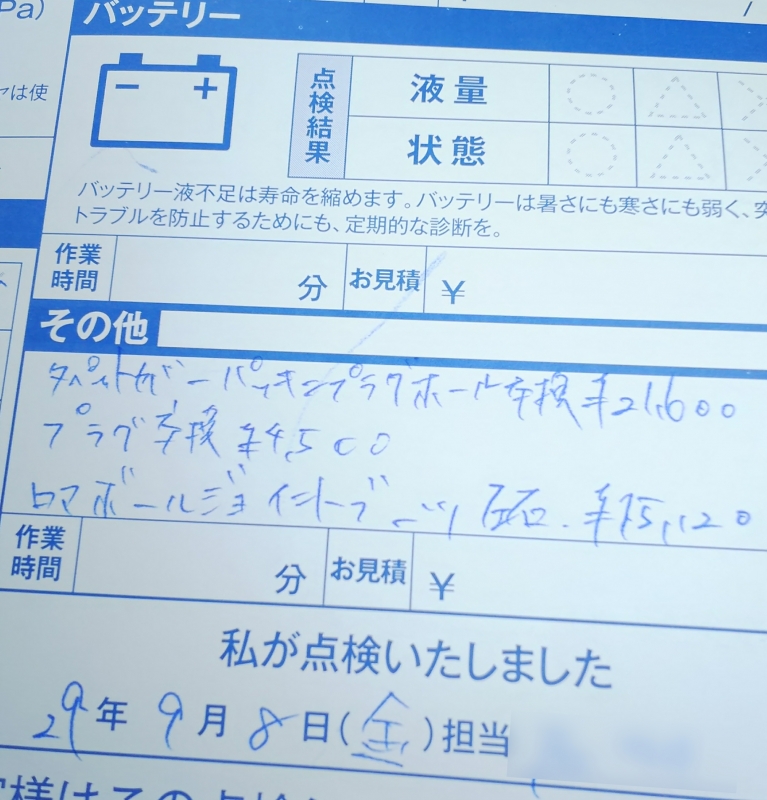 Pa)
バッテリー
は使
点検結果
液量
状態
バッテリー液不足は寿命を縮めます。バッテリーは暑さにも寒さにも弱く、突
トラブルを防止するためにも、定期的な診断を。
作業時間 分 お見積 ¥
その他
タペットカバーパッキンプラグホール交換 ¥21,600
プラグ交換 ¥4,500
ロアボールジョイントブーツ 左右. ¥15,120
作業時間 分 お見積 ¥
私が点検いたしました
29年 9月 8日(金) 担当
様はその点検